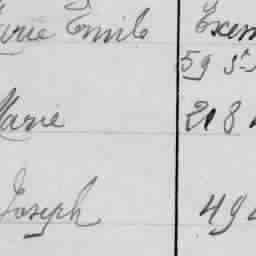 Marie Emile Exem
59 St
Marie 218
Joseph 494